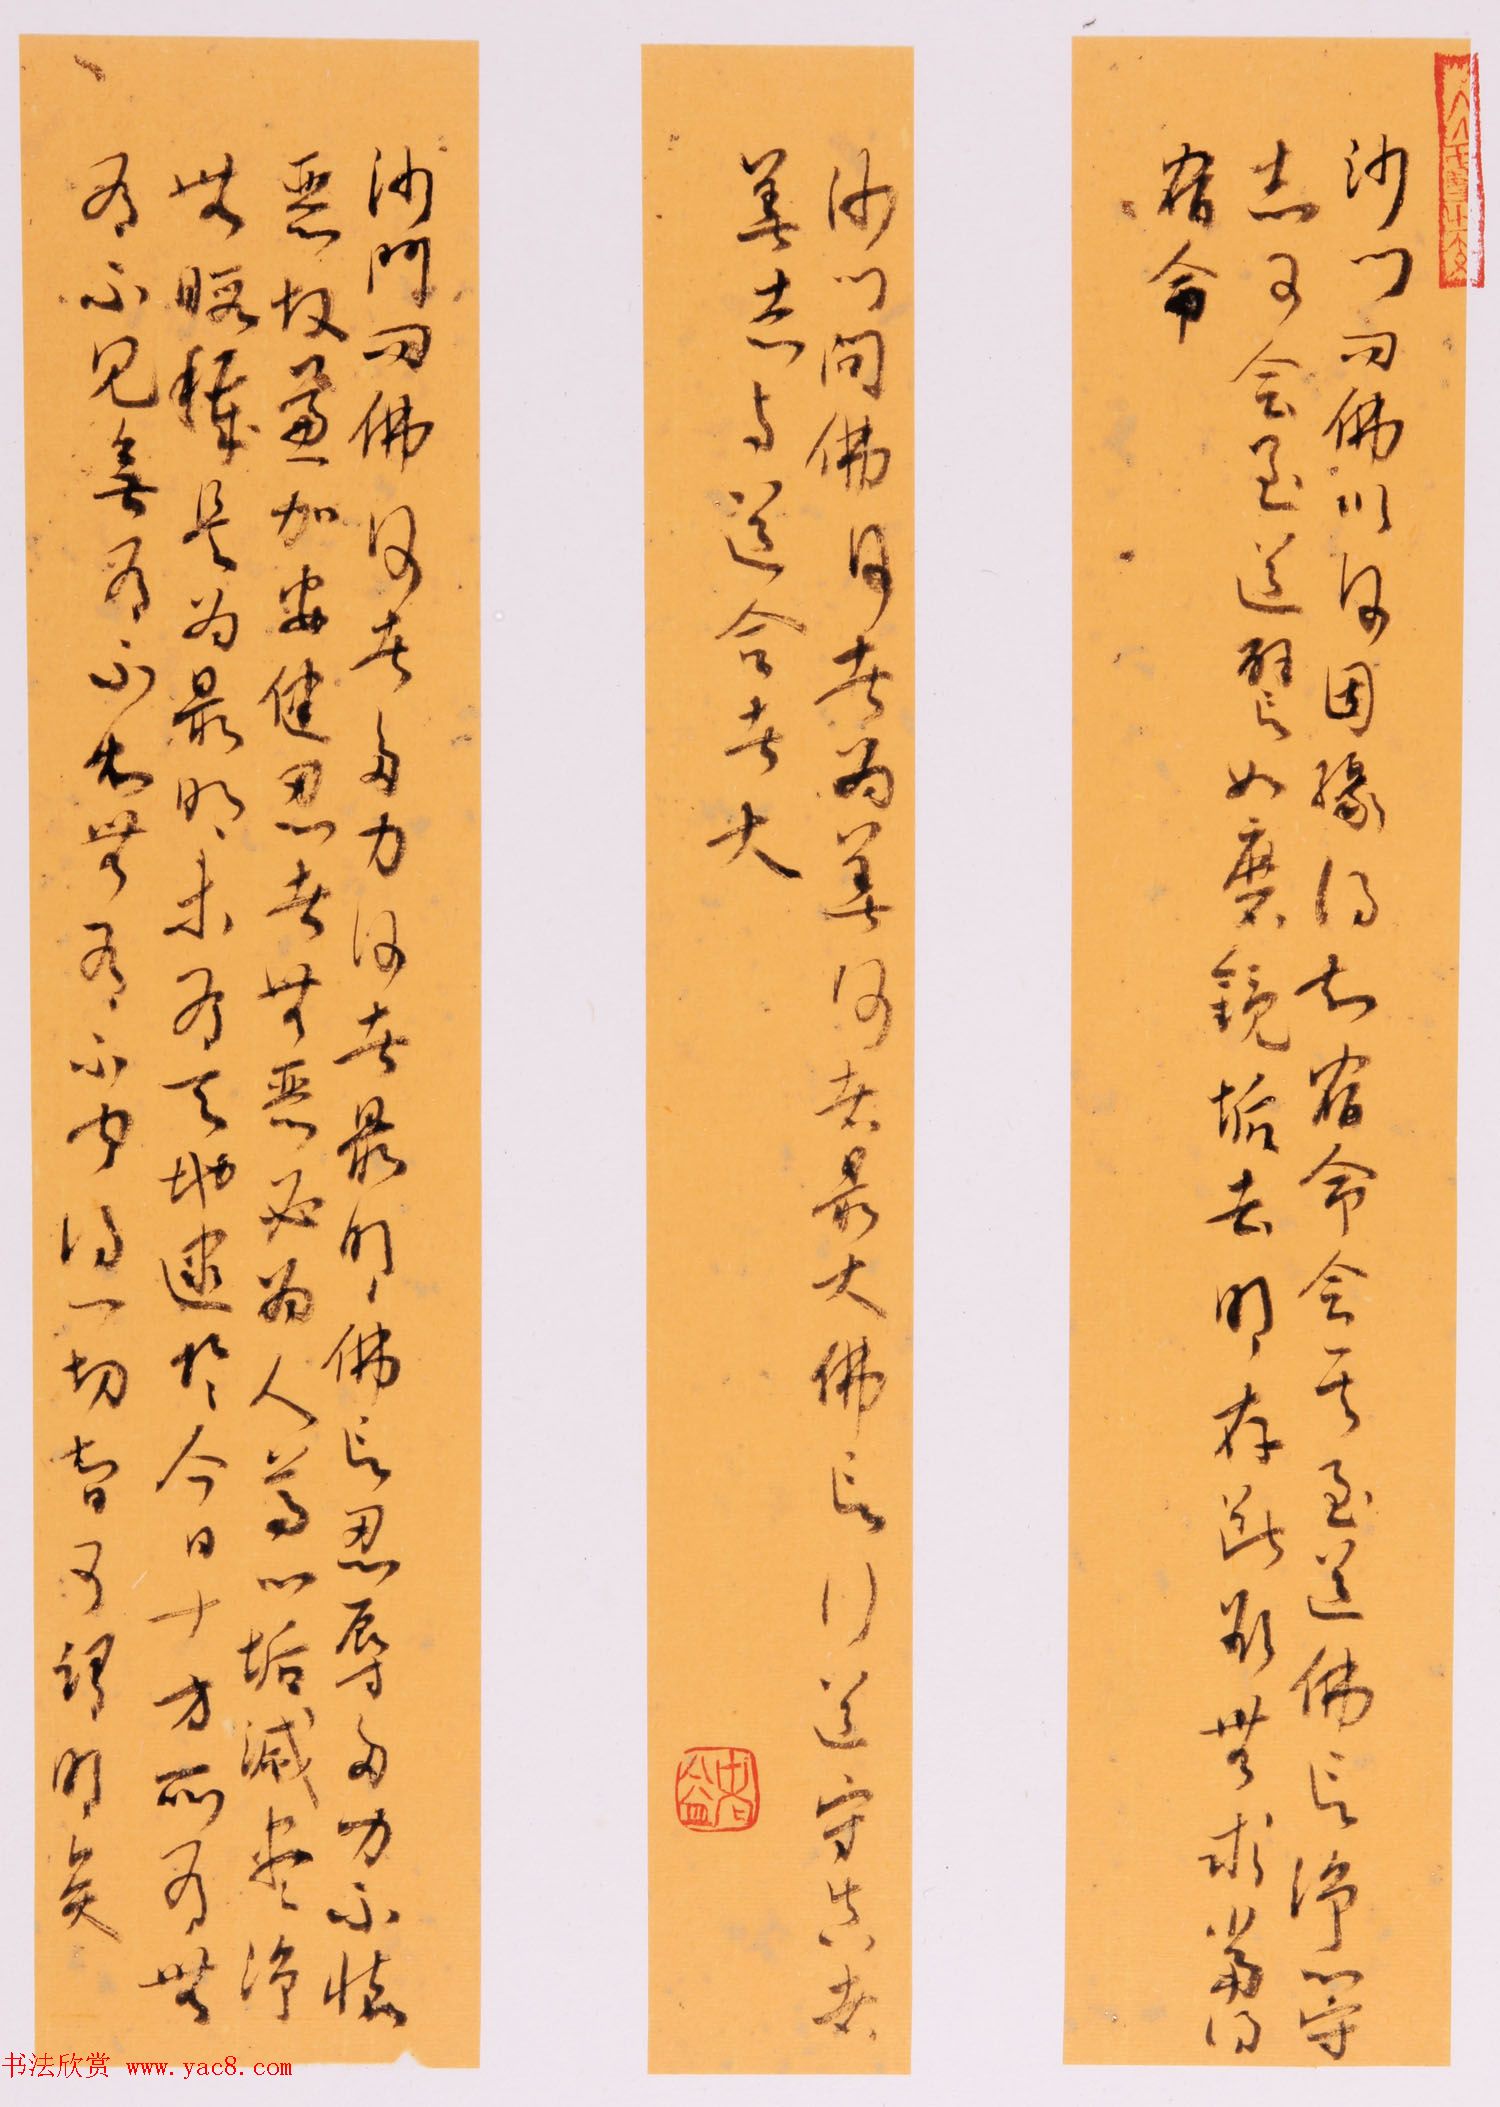 沙门问佛以何因缘得知宿命会其至道佛言净心守
志可会至道譬如磨镜垢去明存断欲無求当得
宿命
沙门问佛何者为善何者最大佛言行道守真者
善志与道合者大
沙門问佛何者多力何者最明佛言忍辱多力不怀
恶故兼加安健忍者無恶必为人尊心垢灭尽净
無瑕穢是为最明未有天地逮於今日十方所有無
有不见無有不知無有不闻得一切智可谓明矣
书法欣赏 www.yac8.com